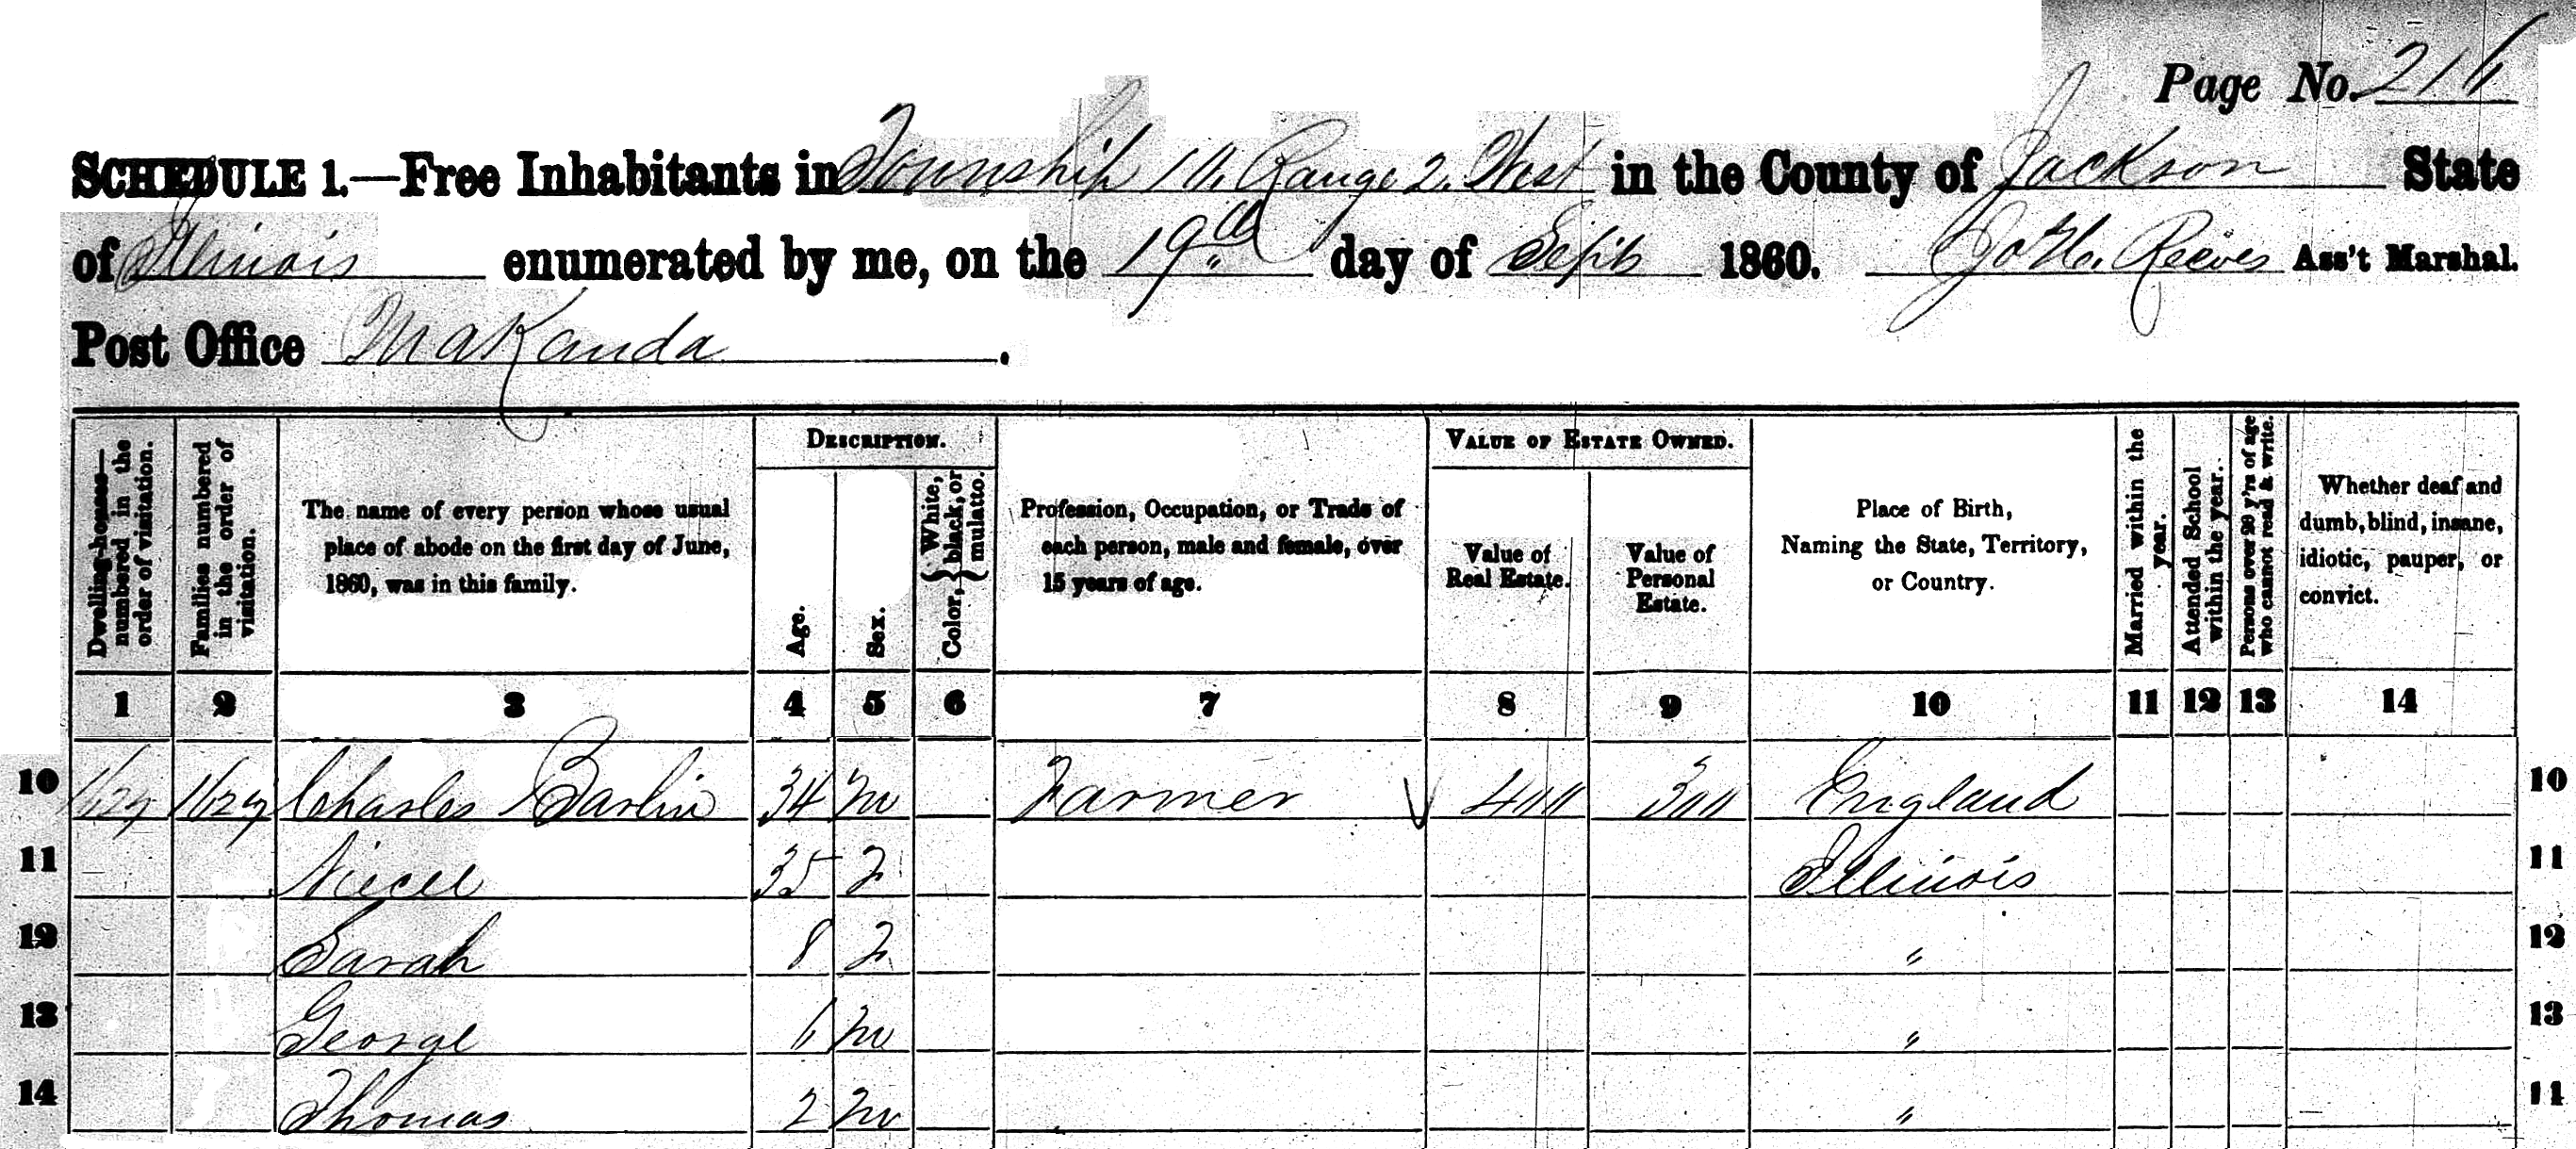 Page No. 216
SCHEDULE 1.—Free Inhabitants in Township 10. Range 2. West in the County of Jackson State
of Illinois enumerated by me, on the 19th day of Sept 1860. Jo H. Reeves Ass't Marshal.
Post Office Makanda.
Dwelling-houses—numbered in the order of visitation.
Families numbered in the order of visitation.
The name of every person whose usual place of abode on the first day of June, 1860, was in this family.
DESCRIPTION.
Age.
Sex.
Color, { White, black, or mulatto.
Profession, Occupation, or Trade of each person, male and female, over 15 years of age.
VALUE OF ESTATE OWNED.
Value of Real Estate.
Value of Personal Estate.
Place of Birth, Naming the State, Territory, or Country.
Married within the year.
Attended School within the year.
Persons over 20 y'rs of age who cannot read & write.
Whether deaf and dumb, blind, insane, idiotic, pauper, or convict.
1 2 3 4 5 6 7 8 9 10 11 12 13 14
10 1629 1629 Charles Barlin 34 M Farmer 4000 300 England 10
11 35 F Illinois 11
12 Sarah 8 F " 12
13 George 6 M " 13
14 Thomas 2 M " 14